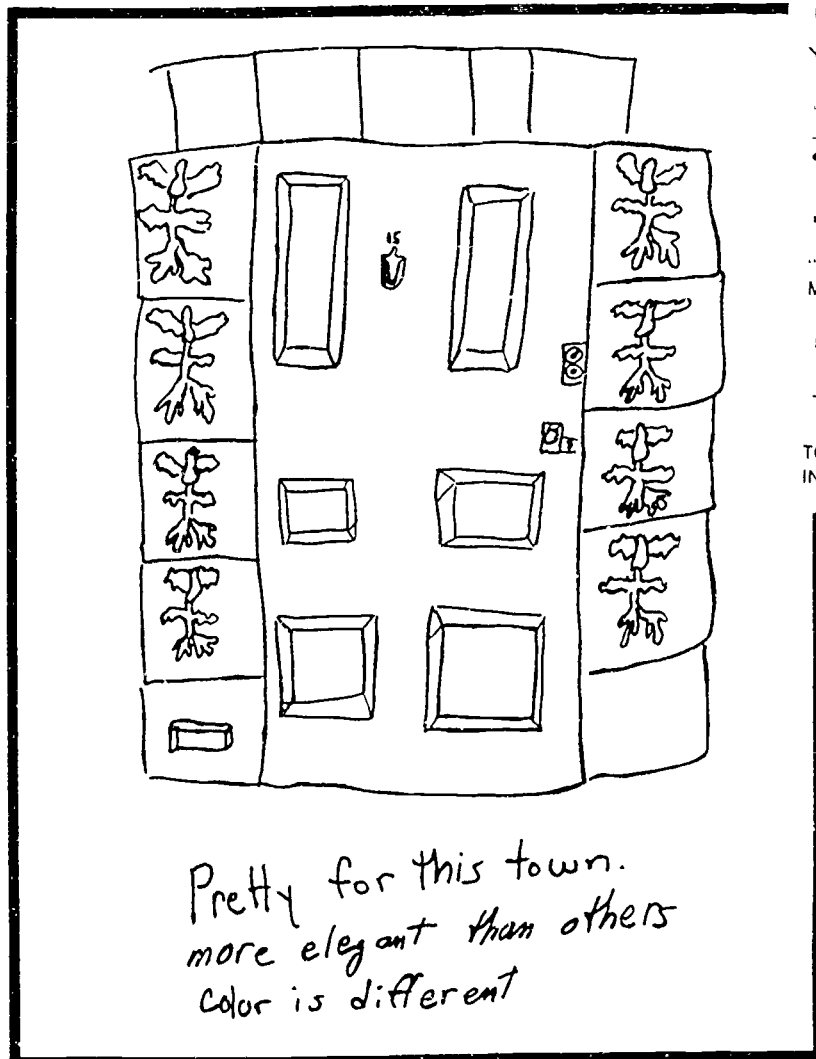 15
Pretty for this town.
more elegant than others
Color is different